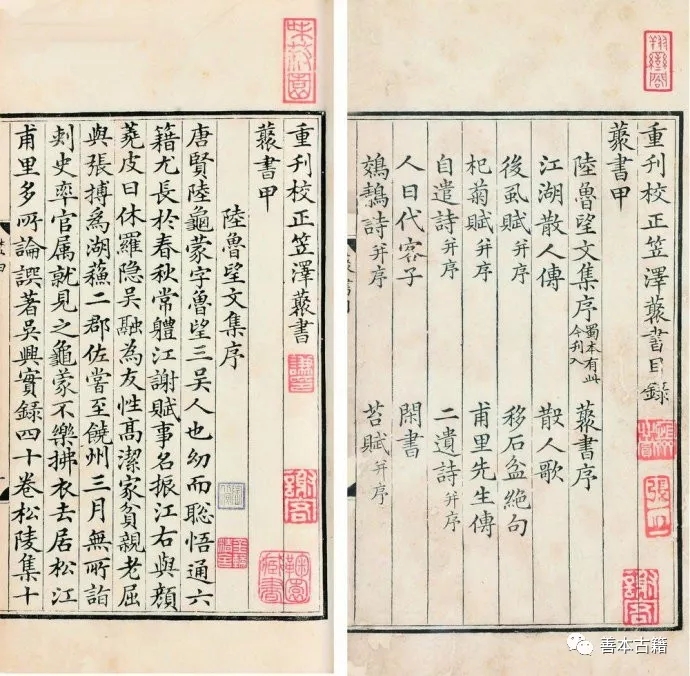 重刊校正笠澤藂書目錄
藂書甲
陸魯望文集序 蜀本有此今刊入 藂書序
江湖散人傳 散人歌
後虱賦并序 移石盆絕句
杞菊賦并序 甫里先生傳
自遣詩并序 二遺詩并序
人日代客子 閑書
鵁鶄詩并序 苔賦并序
重刊校正笠澤藂書
藂書甲
陸魯望文集序
唐賢陸龜蒙字魯望三吳人也幼而聡悟通六
籍尤長於春秋常軆江謝賦事名振江右與顔
蕘皮日休羅隐吳融為友性髙潔家貧親老屈
與張摶為湖蘓二郡佐嘗至饒州三月無所詣
刺史率官属就見之龜蒙不樂拂衣去居松江
甫里多所論譔著吳興實録四十卷松陵集十
善本古籍